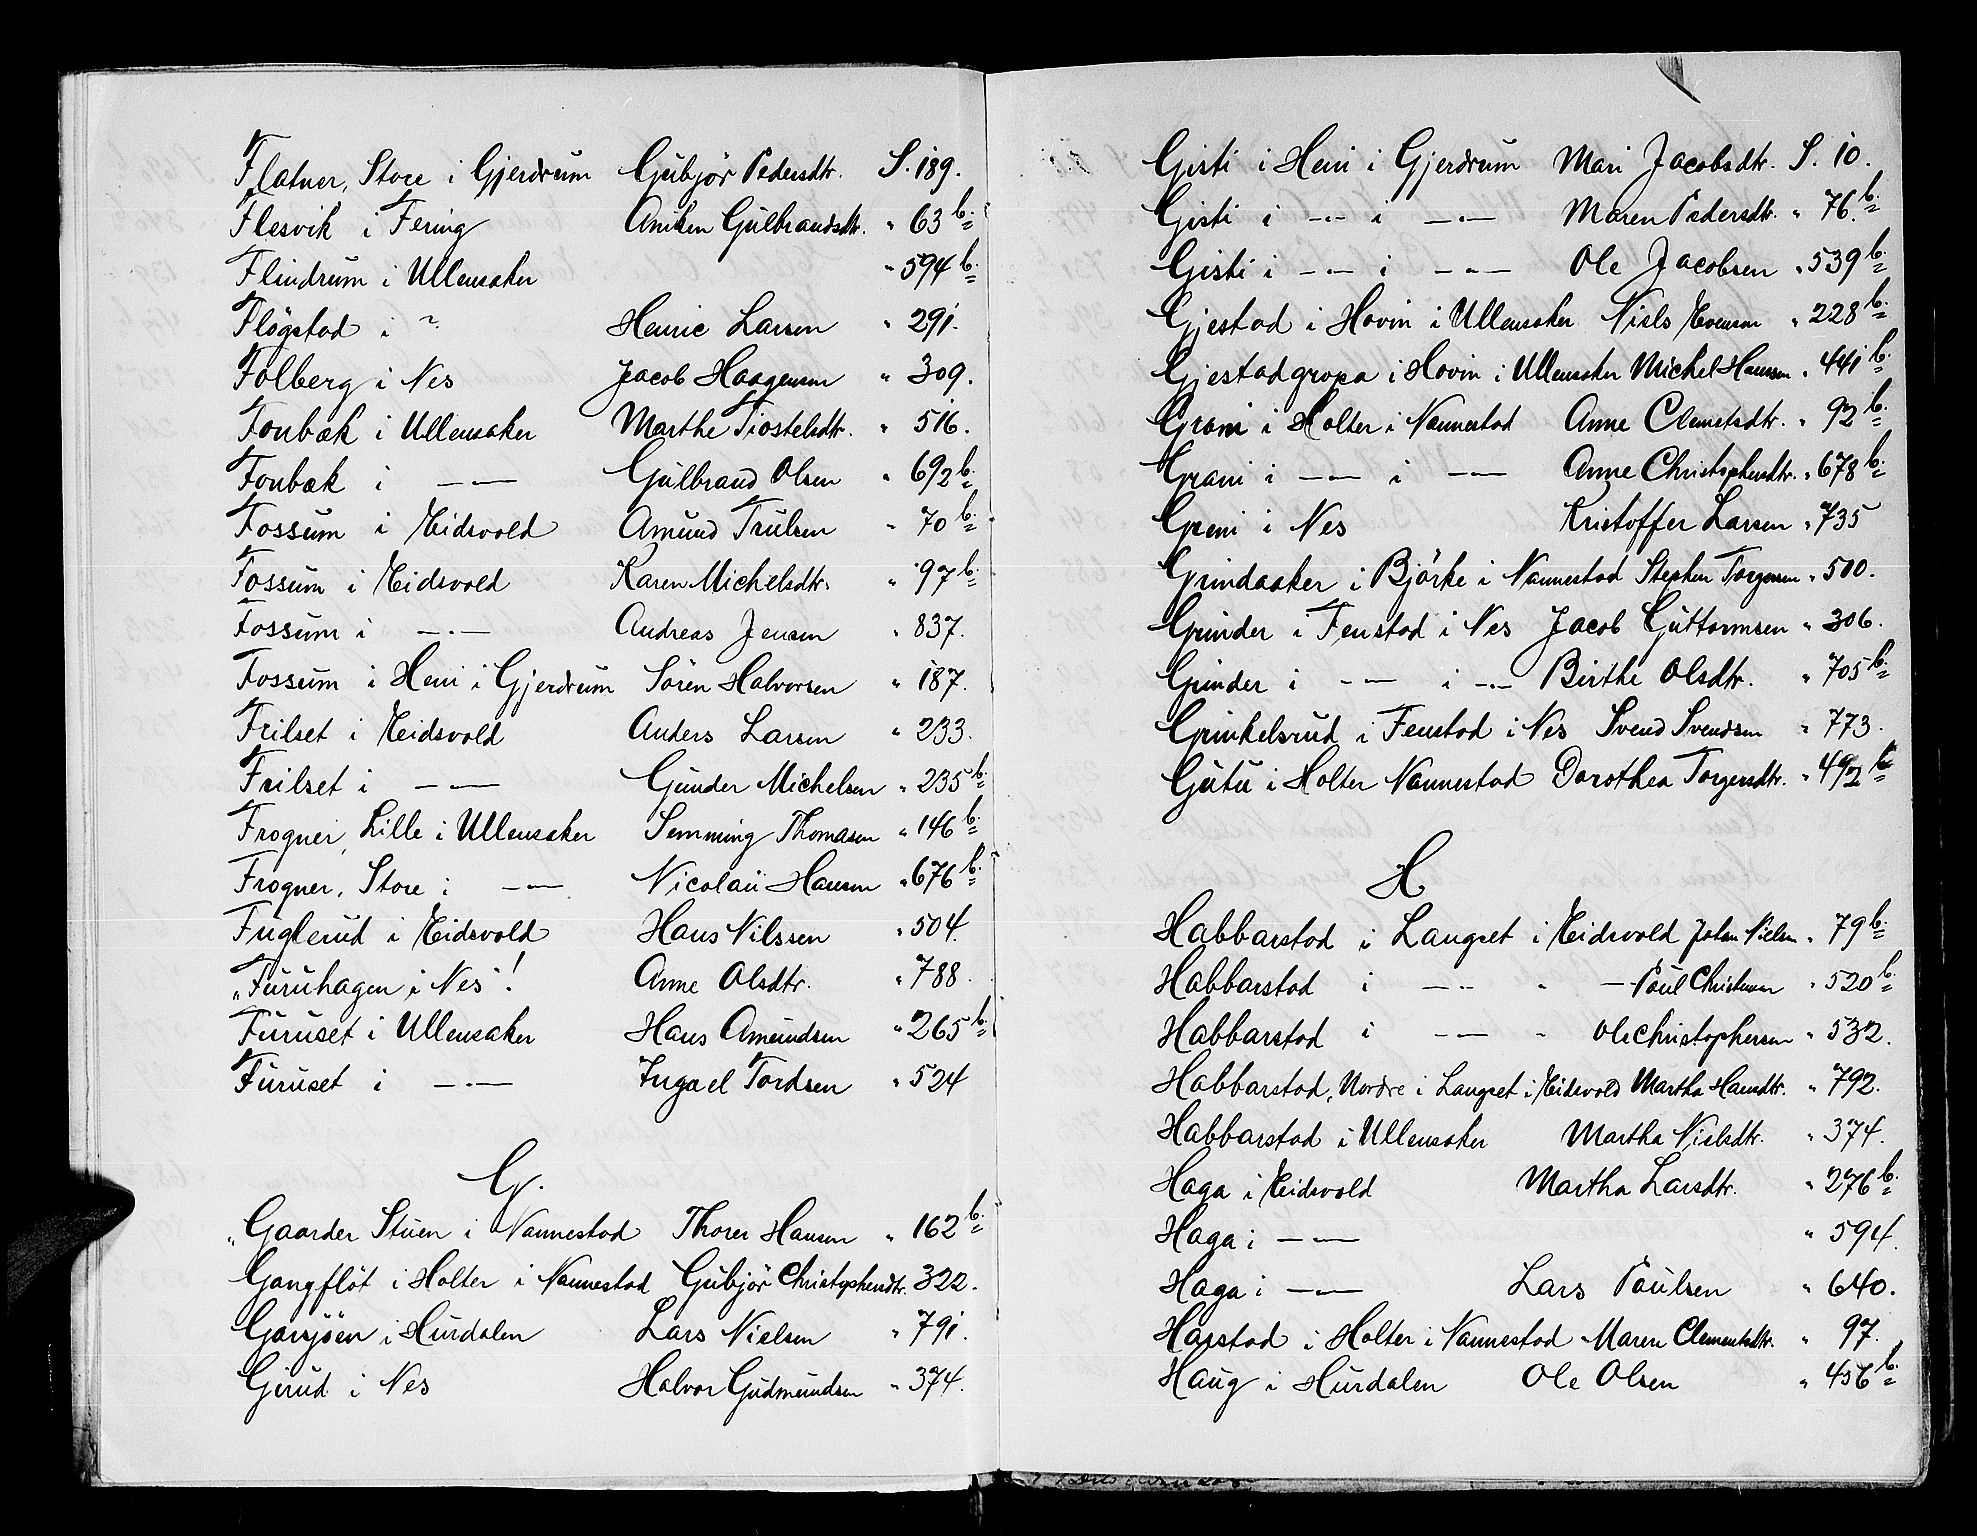 Flatner, Store i Gjerdrum Gubjör Pedersdtr. S. 189.
Flesvik i Fering Aniken Gulbrandsdtr. " 63 b.
Flindrum i Ullensaker " 594 b.
Flögstad i ? Henric Larsen " 291.
Folberg i Nes Jacob Haagensen " 309.
Fonbæk i Ullensaker Marthe Tiostelsdtr. " 516.
Fonbæk i —"— Gulbrand Olsen " 692 b.
Fossum i Eidsvold Amund Trulsen " 70 b.
Fossum i Eidsvold Karen Michelsdtr. " 97 b.
Fossum i —"— Andreas Jensen " 837.
Fossum i Heni i Gjerdrum Sören Halvorsen " 187.
Frilset i Eidsvold Anders Larsen " 233.
Frilset i —"— Gunder Michelsen " 235 b.
Frogner, Lille i Ullensaker Semming Thomasen " 146 b.
Frogner, Store i —"— Nicolaii Hansen " 676 b.
Fuglerud i Eidsvold Hans Nilssen " 504.
"Furuhagen i Nes"! Anne Olsdtr. " 788.
Furuset i Ullensaker Hans Amundsen " 265 b.
Furuset i —"— Ingael Tordsen " 524
G.
"Gaarder Stuen i Nannestad Thorer Hansen " 162 b.
Gangflöt i Holter i Nannestad Gubjör Christophersdtr. 322.
Garsjöen i Hurdalen Lars Nielsen " 791.
Gjerud i Nes Halvor Gudmundsen " 374.
Gisti i Heni i Gjerdrum Mari Jacobsdtr. S. 10.
Gisti i —"— i —"— Maren Pedersdtr. " 76. b.
Gisti i —"— i —"— Ole Jacobsen " 539 b.
Gjestad i Hovin i Ullensaker Niels Evensen " 228 b.
Gjestadgropa i Hovin i Ullensaker Michel Hansen " 441 b.
Grani i Holter i Nannestad Anne Clemetsdtr. " 92 b.
Grani i —"— i —"— Anne Christophersdtr. " 678 b.
Greni i Nes Kristoffer Larsen " 735
Grindaaker i Björke i Nannestad Stephen Torgersen " 500.
Grinder i Fenstad i Nes Jacob Guttormsen " 306.
Grinder i —"— i —"— Birthe Olsdtr. " 705 b.
Grinkelsrud i Fenstad i Nes Svend Svendsen " 773.
Gutu i Holter Nannestad Dorothea Torgersdtr. " 492 b
H
Habbarstad i Langset i Eidsvold Johan Nielsen " 79 b.
Habbarstad i —"— " — Poul Christensen " 520 b.
Habbarstad i —"— " Ole Christophersen " 532.
Habbarstad, Nordre i Langset i Eidsvold Martha Hansdtr. " 792.
Habbarstad i Ullensaker Martha Nielsdtr. " 374.
Haga i Eidsvold Martha Larsdtr. " 276 b.
Haga i —"— " 594.
Haga i —"— Lars Poulsen " 640.
Harstad i Holter i Nannestad Maren Clementsdtr. " 97.
Haug i Hurdalen Ole Olsen " 456 b.